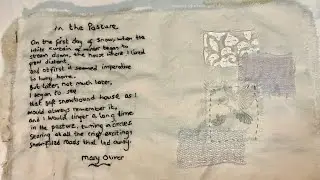 In the Pasture
On the first day of snow, when the
white curtain of winter began to
stream down, the house where I lived
grew distant
and at first it seemed imperative
to hurry home.
But later, not much later,
I began to see
that soft snowbound house as I
would always remember it,
and I would linger a long time
in the pasture, turning in circles
staring at all the crisp exciting
snow-filled roads that led away.
Mary Oliver